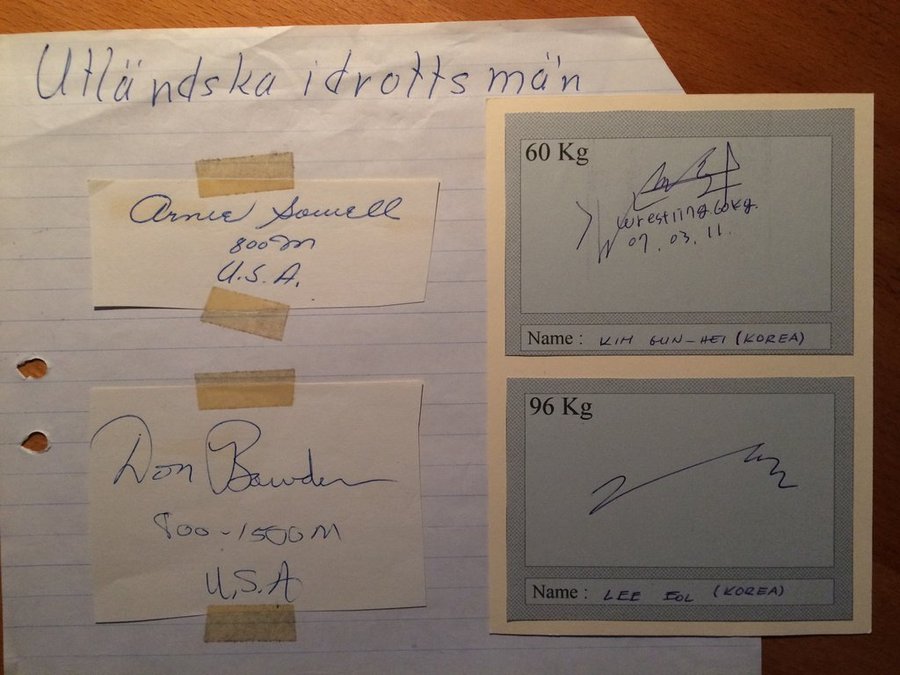 Utländska idrottsmän
Arnie Sowell
800 M
U.S.A.
Don Bowden
800-1500 M
U.S.A
60 Kg
wrestling 60kg.
07.03.11.
Name : KIM GUN-HEI (KOREA)
96 Kg
Name : LEE EOL (KOREA)